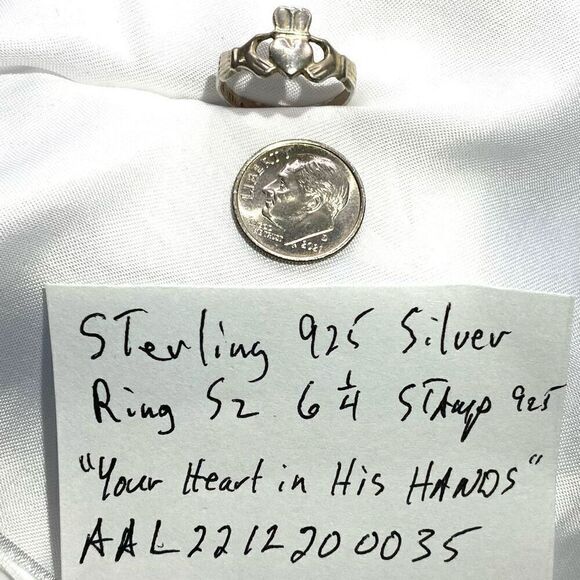 LIBERTY
Sterling 925 Silver
Ring Sz 6 1/4 STAmp 925
"Your Heart in His HANDS"
AAL2212200035